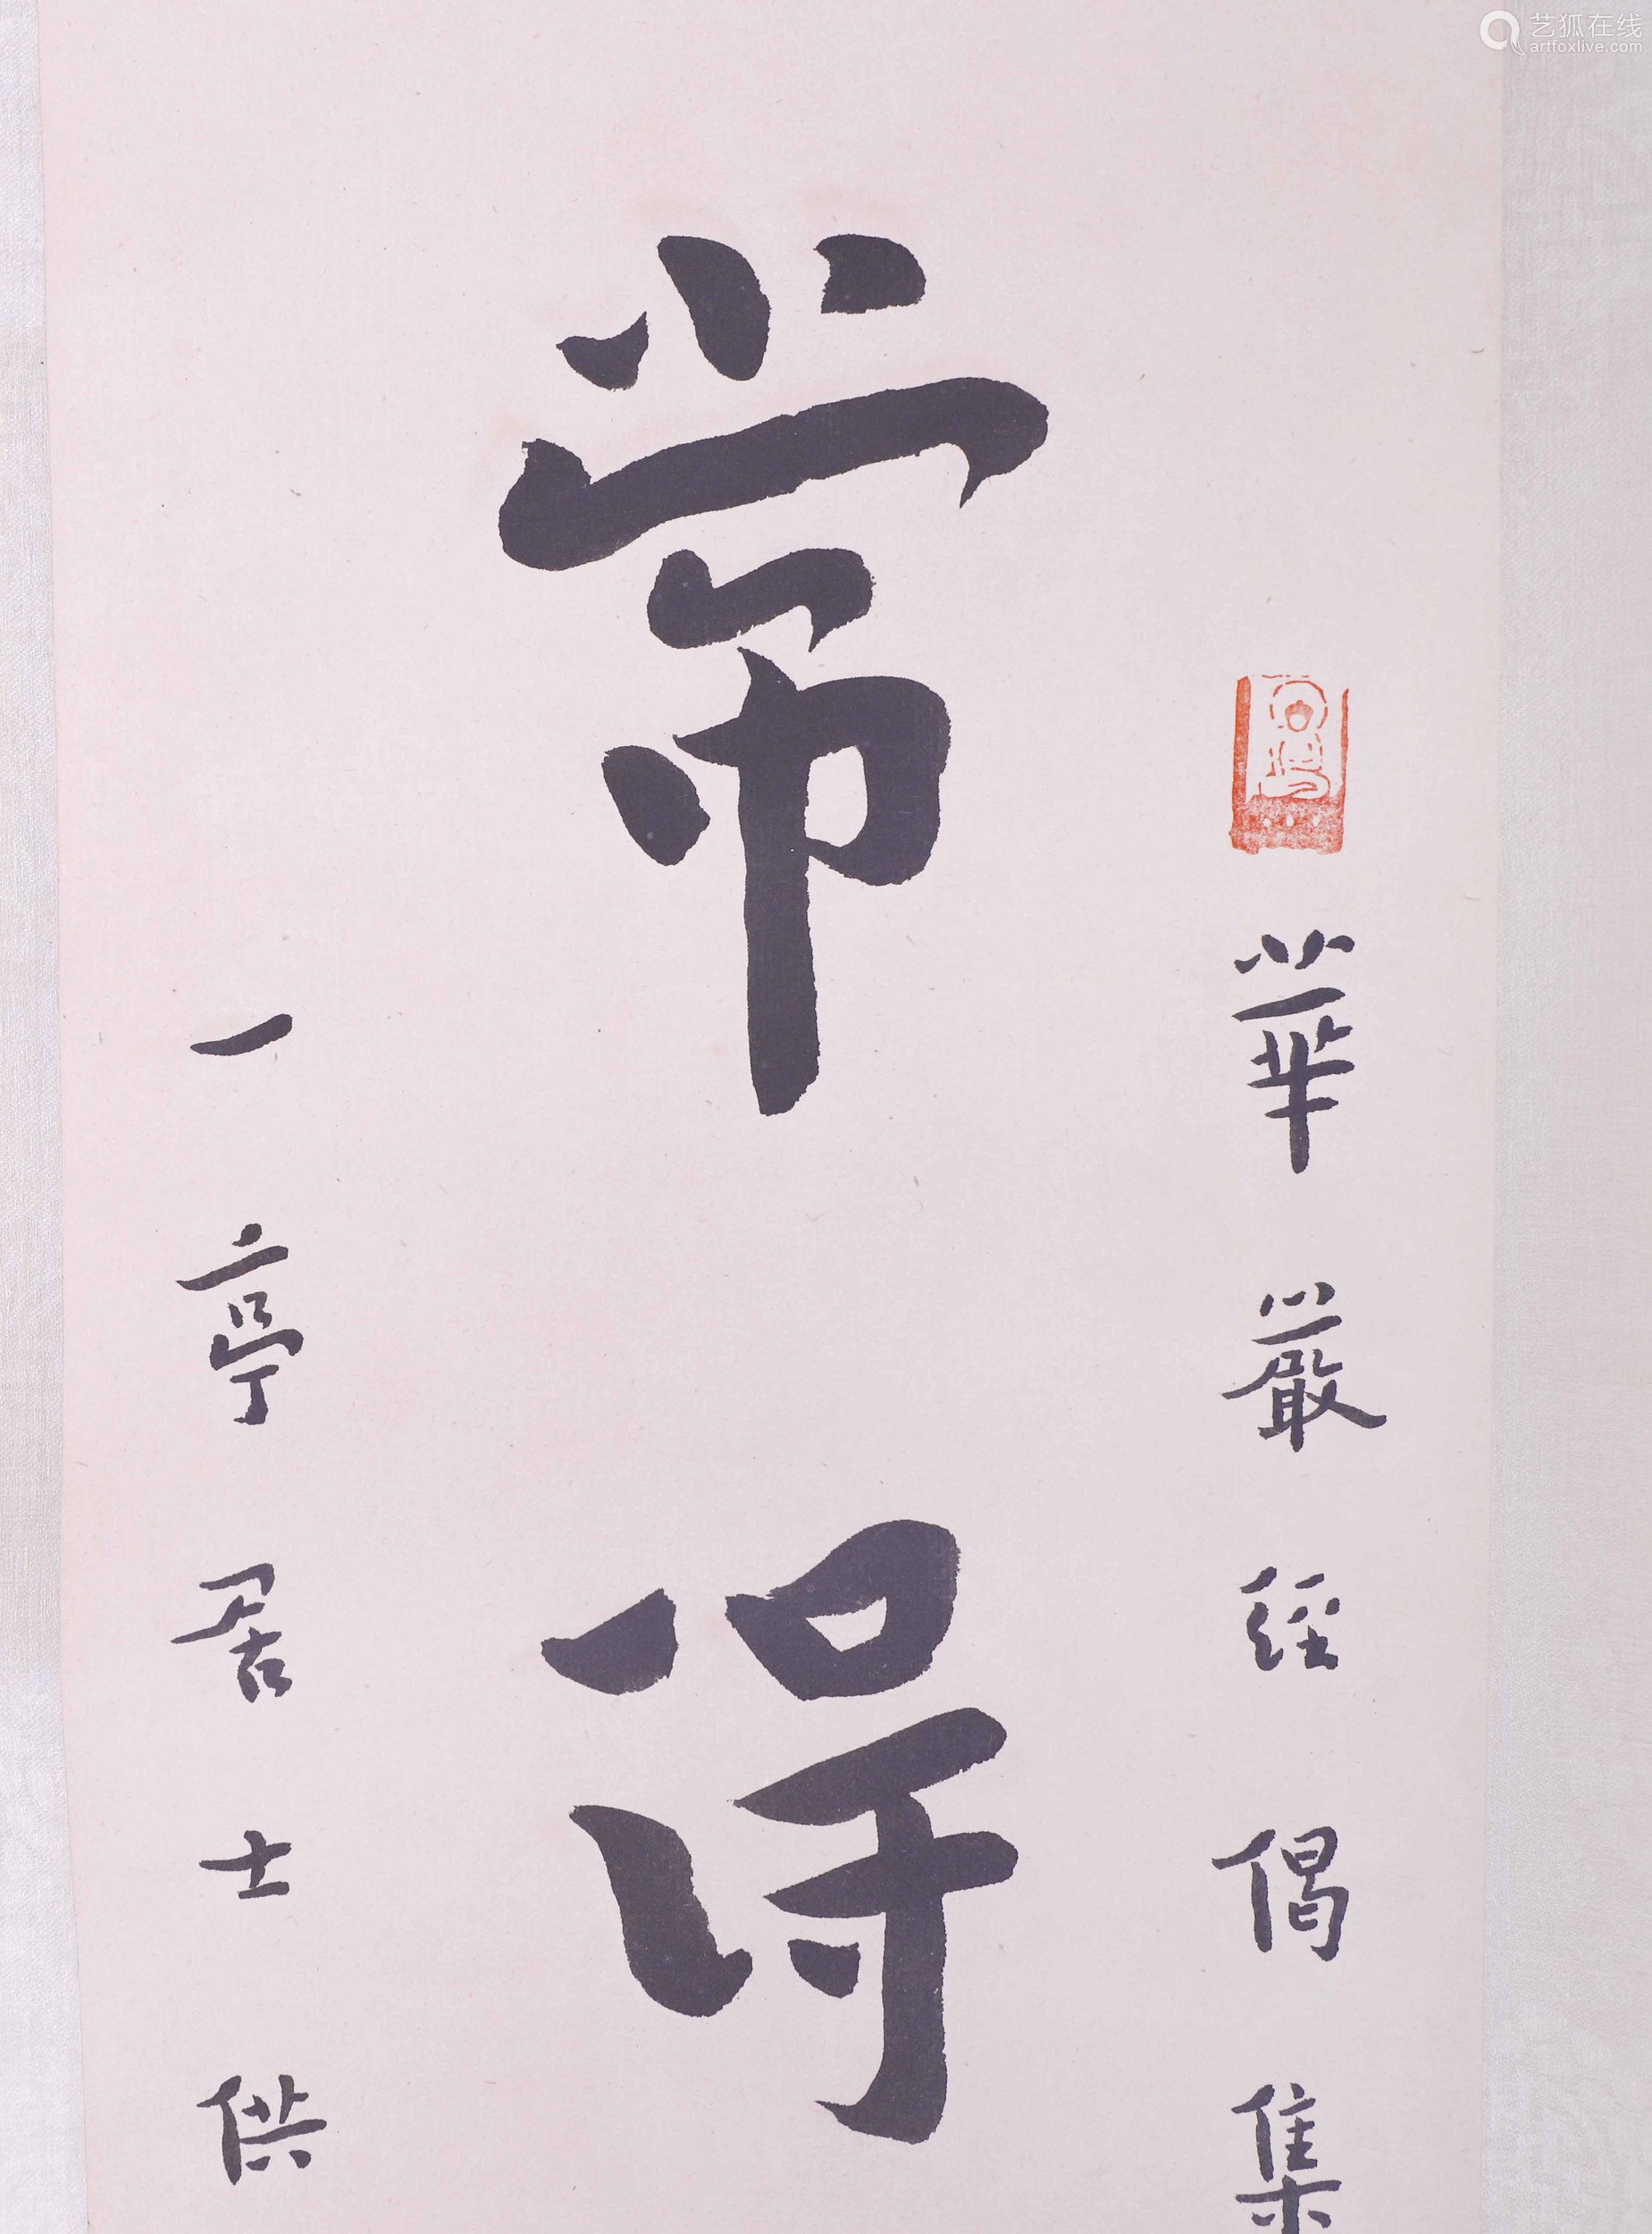 艺狐在线
artfoxlive.com
華嚴經偈集
常得
一亭居士供